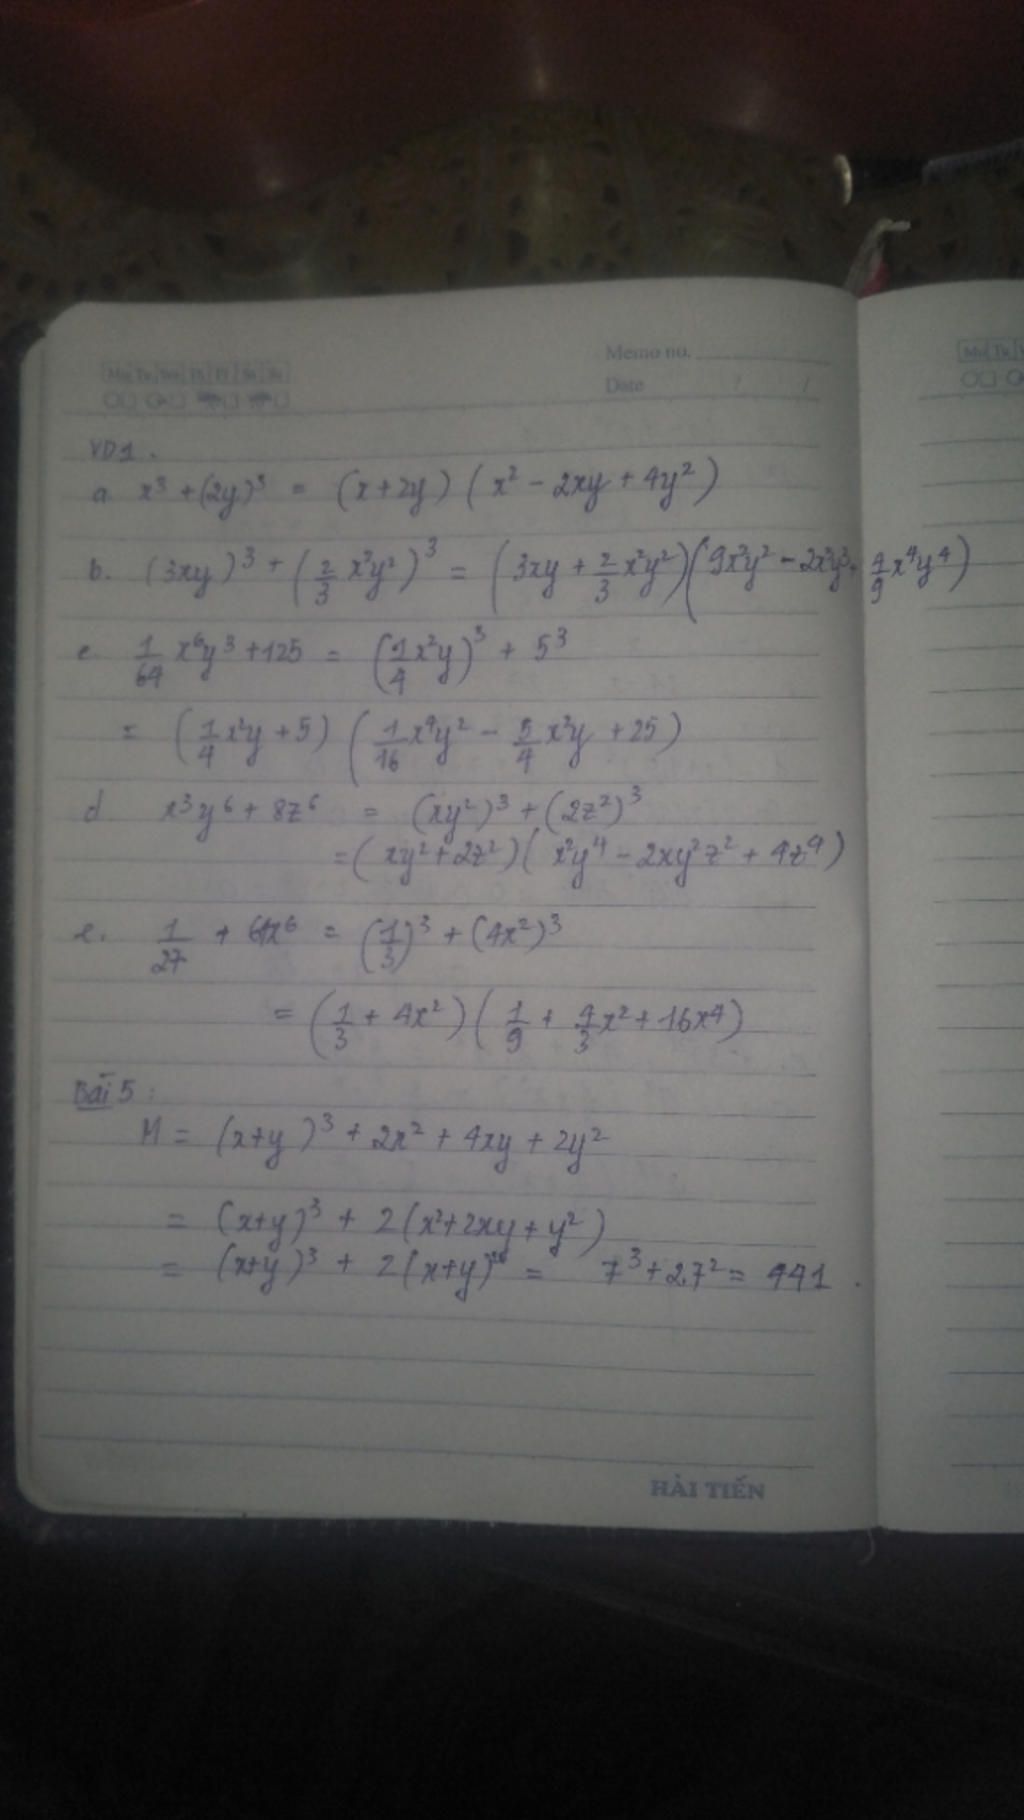 Mo Tu We Th Fr Sa Su
Memo no.
Date / /
VD1.
a. x³ + (2y)³ = (x + 2y) (x² - 2xy + 4y²)
b. (3xy)³ + (2/3 x²y²)³ = (3xy + 2/3 x²y²)(9x²y² - 2x³y³ + 4/9 x⁴y⁴)
c. 1/64 x⁶y³ + 125 = (1/4 x²y)³ + 5³
= (1/4 x²y + 5) (1/16 x⁴y² - 5/4 x²y + 25)
d x³y⁶ + 8z⁶ = (xy²)³ + (2z²)³
= (xy² + 2z²)(x²y⁴ - 2xy²z² + 4z⁴)
e. 1/27 + 64x⁶ = (1/3)³ + (4x²)³
= (1/3 + 4x²) (1/9 + 4/3 x² + 16x⁴)
Bài 5:
M = (x+y)³ + 2x² + 4xy + 2y²
= (x+y)³ + 2(x² + 2xy + y²)
= (x+y)³ + 2(x+y)² = 7³ + 2.7² = 441.
HẢI TIẾN
Mo Tu